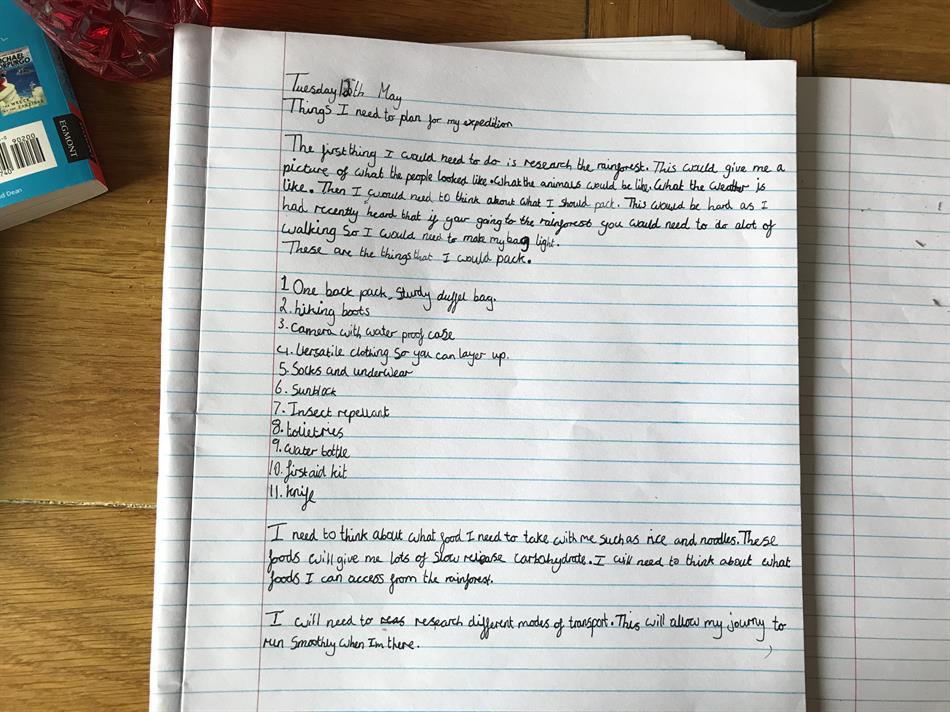 MICHAEL
MORPURGO
EGMONT
90200
d Dean
Tuesday 12th May
Things I need to plan for my expedition
The first thing I would need to do is research the rainforest. This would give me a
picture of what the people looked like. What the animals would be like. What the weather is
like. Then I would need to think about what I should pack. This would be hard as I
had recently heard that if your going to the rainforest you would need to do alot of
walking so I would need to make my bag light.
These are the things that I would pack.
1 One back pack - sturdy duffel bag.
2. hiking boots
3. camera with water proof case
4. Versatile clothing so you can layer up.
5. Socks and underwear
6. Sunblock
7. Insect repellant
8. toiletries
9. water bottle
10. first aid kit
11. knife
I need to think about what food I need to take with me such as rice and noodles. These
foods will give me lots of slow release carbohydrate. I will need to think about what
foods I can access from the rainforest.
I will need to research different modes of transport. This will allow my journy to
run smoothly when Im there.